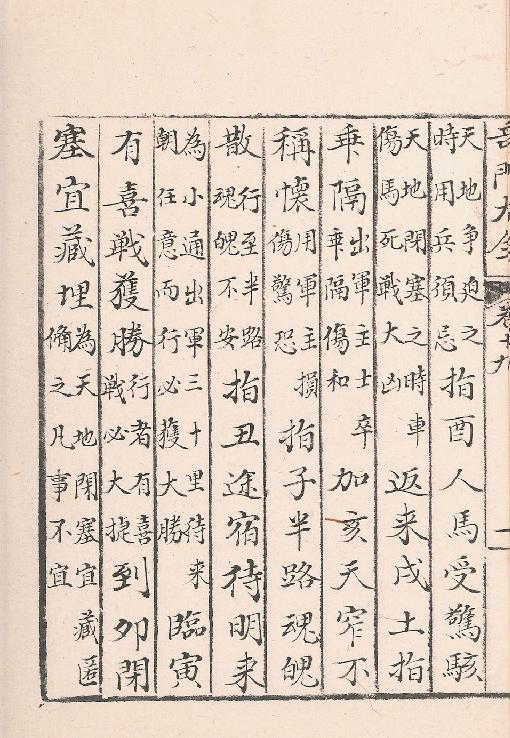 門大全 卷十九 一
天地爭迫之時用兵須忌指酉人馬受驚駭
天地閉塞之時車傷馬死戰大凶返来戌土指
乖隔出軍主士卒乖隔傷和加亥天窄不
稱懷用軍主損傷驚恐指子半路魂魄
散行至半路魂魄不安指丑途宿待明来
為小通出軍三十里待来朝任意而行必獲大勝臨寅
有喜戰獲勝行者有喜戰必大捷到卯閉
塞宜藏埋為天地閉塞宜藏匿脩之凡事不宜